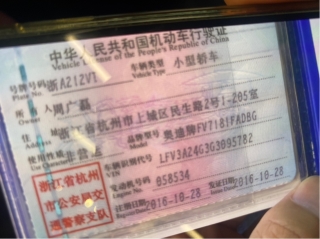 中华人民共和国机动车行驶证
Vehicle License of the People's Republic of China
号牌号码 浙AZ12V1 车辆类型 小型轿车
Plate No. Vehicle Type
所有人 周广磊
住址 浙江省杭州市上城区民生路2号1-205室
使用性质 非营运 品牌型号 奥迪牌FV7181FADBG
Use Character Model
浙江省杭州 车辆识别代号 LFV3A24G3G3095782
VIN
市公安局交 发动机号码 058534
Engine No.
通警察支队 注册日期 2016-10-28 发证日期 2016-10-28
Register Date Issue Date